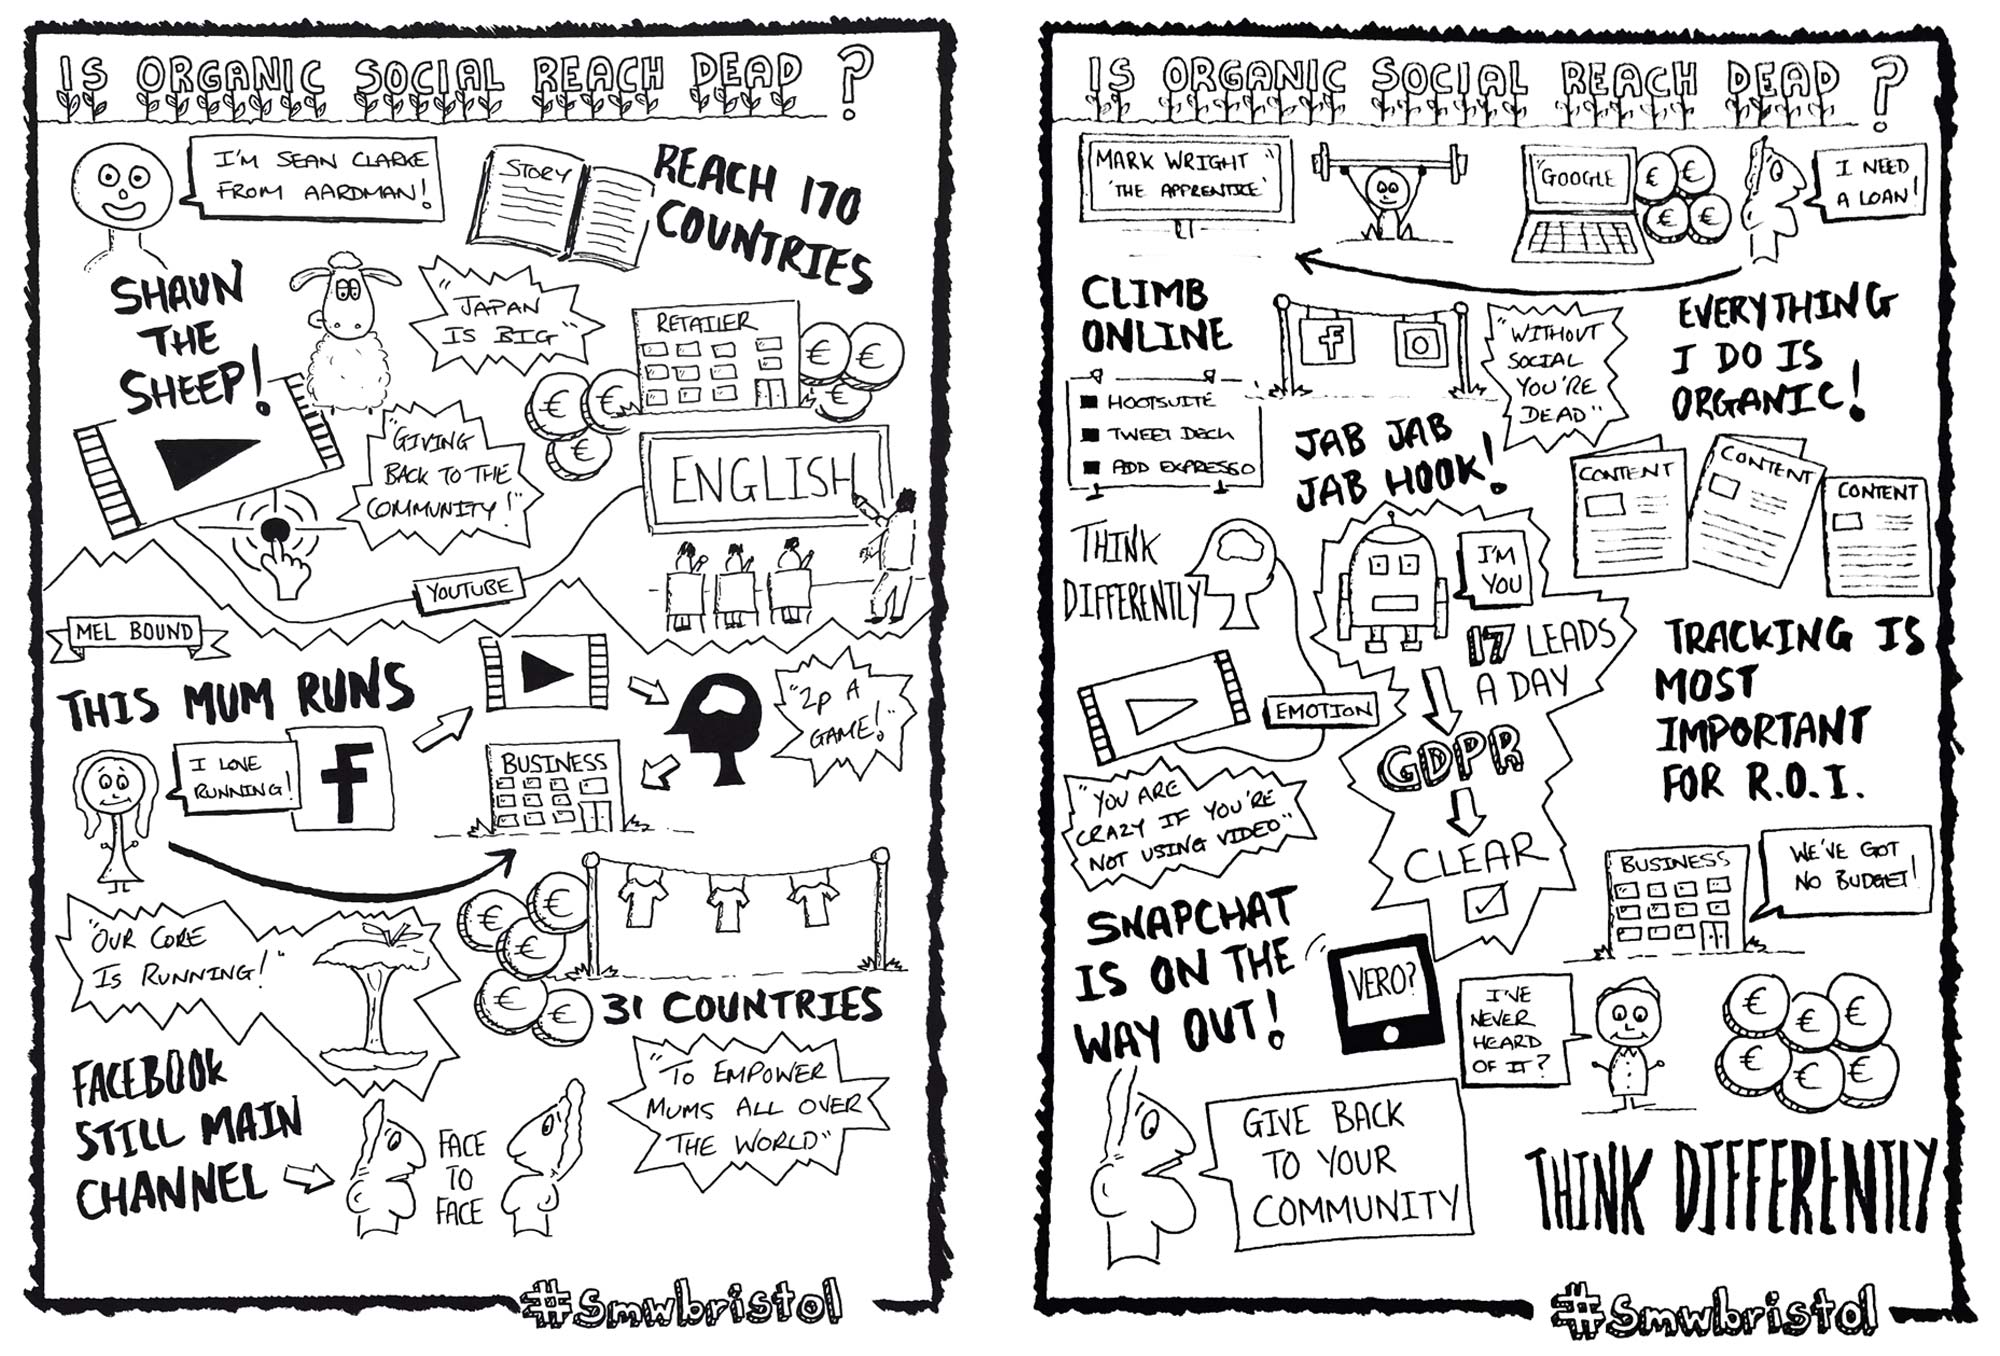 IS ORGANIC SOCIAL REACH DEAD?
I'M SEAN CLARKE
FROM AARDMAN!
STORY
REACH 170
COUNTRIES
SHAUN
THE
SHEEP!
"JAPAN
IS BIG"
RETAILER
€ €
€
€ €
€
"GIVING
BACK TO THE
COMMUNITY!"
ENGLISH
YOUTUBE
MEL BOUND
THIS MUM RUNS
"2P A
GAME!"
I LOVE
RUNNING!
f
BUSINESS
"OUR CORE
IS RUNNING!"
€ €
€
€
€
31 COUNTRIES
FACEBOOK
STILL MAIN
CHANNEL
FACE
TO
FACE
"TO EMPOWER
MUMS ALL OVER
THE WORLD"
#smwbristol
IS ORGANIC SOCIAL REACH DEAD?
MARK WRIGHT
'THE APPRENTICE'
"GOOGLE
€ €
€ €
I NEED
A LOAN!
CLIMB
ONLINE
f
"WITHOUT
SOCIAL
YOU'RE
DEAD"
EVERYTHING
I DO IS
ORGANIC!
HOOTSUITE
TWEET DECK
ADD EXPRESSO
JAB JAB
JAB HOOK!
CONTENT
CONTENT
CONTENT
THINK
DIFFERENTLY
I'M
YOU
17 LEADS
A DAY
EMOTION
GDPR
CLEAR
TRACKING IS
MOST
IMPORTANT
FOR R.O.I.
"YOU ARE
CRAZY IF YOU'RE
NOT USING VIDEO"
BUSINESS
WE'VE GOT
NO BUDGET!
SNAPCHAT
IS ON THE
WAY OUT!
VERO?
I'VE
NEVER
HEARD
OF IT?
€ € €
€ € €
GIVE BACK
TO YOUR
COMMUNITY
THINK DIFFERENTLY
#smwbristol